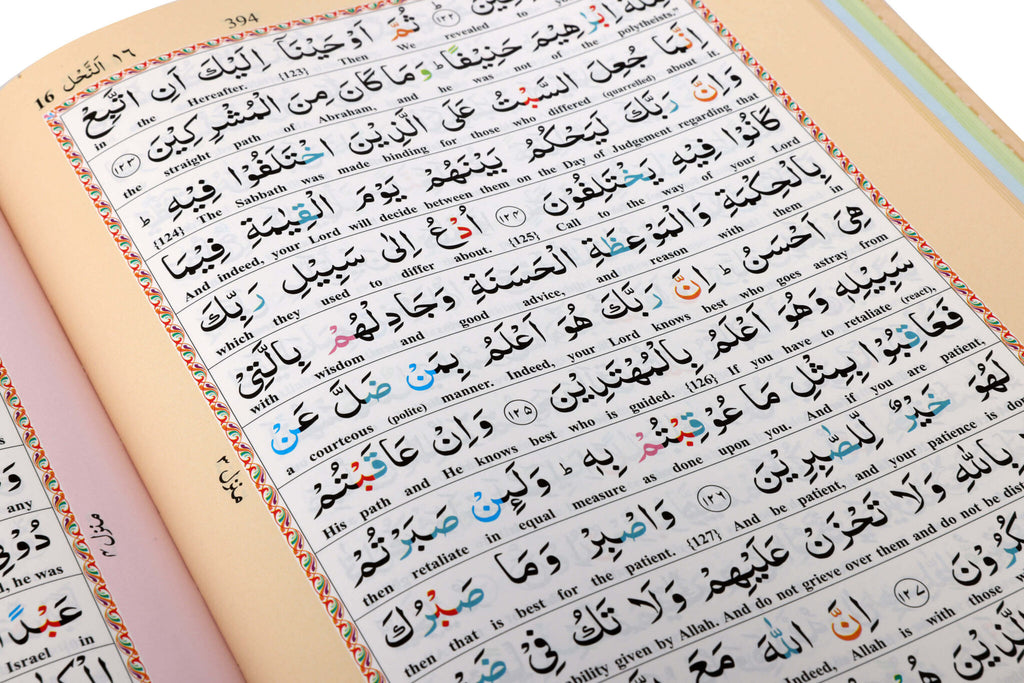 394
١٦ اَلنَّحْل 16
ثُمَّ اَوْحَيْنَآ اِلَيْكَ اَنِ اتَّبِعْ
Hereafter. {123} Then We revealed to
اِبْرٰهِيْمَ حَنِيْفًا ؕ وَمَا كَانَ مِنَ الْمُشْرِكِيْنَ ﴿١٢٣﴾
in the straight path of Abraham, and he was not of the polytheists."
اِنَّمَا جُعِلَ السَّبْتُ عَلَى الَّذِيْنَ اخْتَلَفُوْا فِيْهِ ؕ
{124} The Sabbath was made binding for those who differed (quarrelled) about it.
وَاِنَّ رَبَّكَ لَيَحْكُمُ بَيْنَهُمْ يَوْمَ الْقِيٰمَةِ فِيْمَا
And indeed, your Lord will decide between them on the Day of Judgement regarding that
كَانُوْا فِيْهِ يَخْتَلِفُوْنَ ﴿١٢٤﴾ اُدْعُ اِلٰى سَبِيْلِ رَبِّكَ
which they used to differ about. {125} Call to the way of your Lord
بِالْحِكْمَةِ وَالْمَوْعِظَةِ الْحَسَنَةِ وَجَادِلْهُمْ بِالَّتِيْ
with wisdom and good advice, and reason with them in
هِيَ اَحْسَنُ ؕ اِنَّ رَبَّكَ هُوَ اَعْلَمُ بِمَنْ ضَلَّ عَنْ
a courteous (polite) manner. Indeed, your Lord knows best who goes astray from
سَبِيْلِهٖ وَهُوَ اَعْلَمُ بِالْمُهْتَدِيْنَ ﴿١٢٥﴾ وَاِنْ عَاقَبْتُمْ
His path and He knows best who is guided. {126} If you have to retaliate (react),
فَعَاقِبُوْا بِمِثْلِ مَا عُوْقِبْتُمْ بِهٖ ؕ وَلَئِنْ صَبَرْتُمْ
then retaliate in equal measure as done upon you. And if you are patient,
لَهُوَ خَيْرٌ لِّلصّٰبِرِيْنَ ﴿١٢٦﴾ وَاصْبِرْ وَمَا صَبْرُكَ
then that is best for the patient. {127} And be patient, and your patience is
بِاللّٰهِ وَلَا تَحْزَنْ عَلَيْهِمْ وَلَا تَكُ فِيْ
given by Allah. And do not grieve over them and do not be
﴿١٢٧﴾ اِنَّ اللّٰهَ مَعَ
Indeed, Allah is with those
منزل ٣
منزل ٣
any
he was
عَبْدًا
Israel in